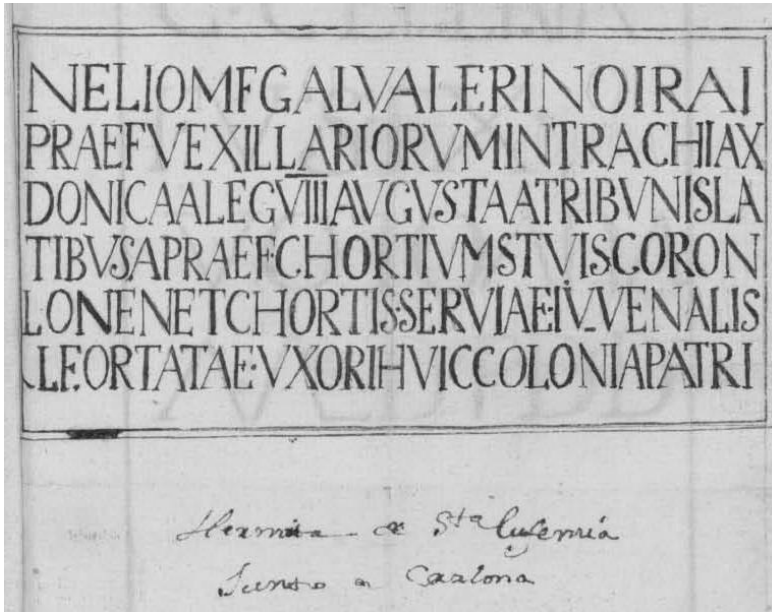 NELIOMFGALVALERINOIRAI
PRAEFVEXILLARIORVMINTRACHIAX
DONICAALEGVIIIAVGVSTAATRIBVNISLA
TIBVSAPRAEF·CHORTIVMSTVISCORON
LONENETCHORTIS·SERVIAE·IV_VENALIS
LFORTATAE·VXORIHVICCOLONIAPATRI
Hermita de Sta Eufemia
Junto a Cazlona